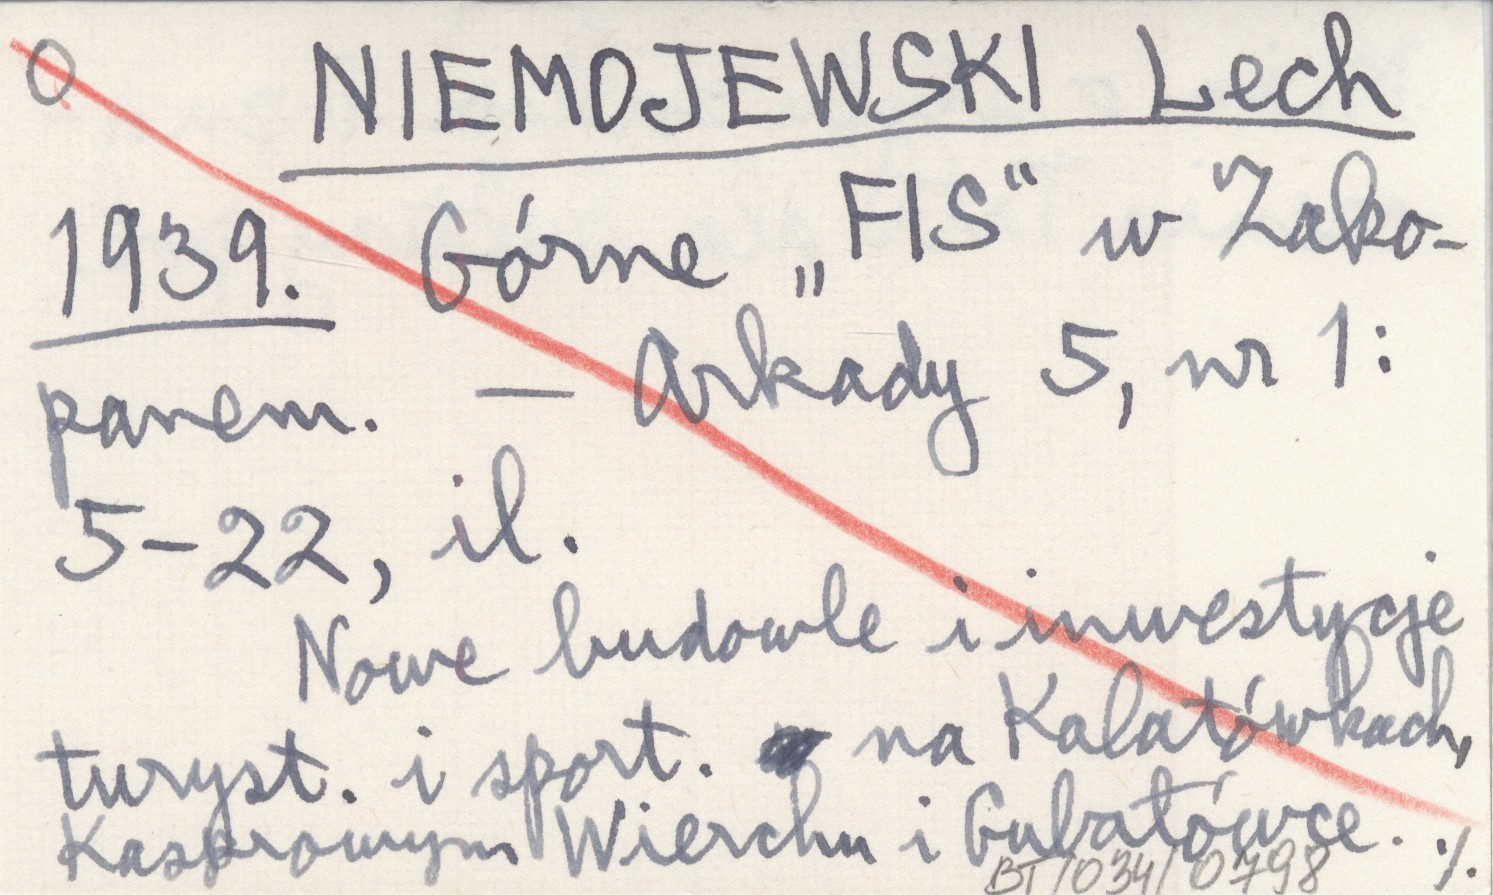 O
NIEMOJEWSKI Lech
1939. Górne „FIS“ w Zako-
panem. — Arkady 5, nr 1:
5-22, il.
Nowe budowle i inwestycje
turyst. i sport. na Kalatówkach,
Kasprowym Wierchu i Gubałówce. ./.
BT/034/0798